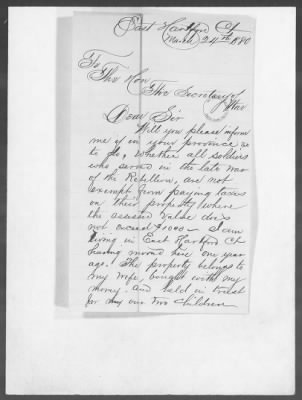 East Hartford Ct
March 24th 1880
To
The Hon
The Secretary of
War
Dear Sir
Will you please inform
me if in your province so
to do, whether all soldiers
who served in the late war
of the Rebellion, are not
exempt from paying taxes
on their property where
the assessed value does
not exceed $1000 - I am
living in East Hartford Ct
having moved here one year
ago. The property belongs to
my wife, bought with my
money and held in trust
for our two children